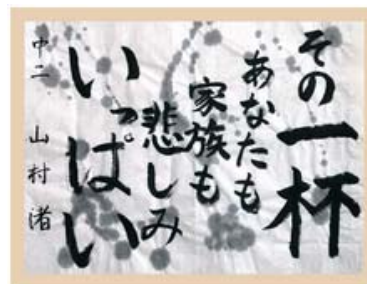 その一杯
あなたも
家族も
悲しみ
いっぱい
中二 山村渚